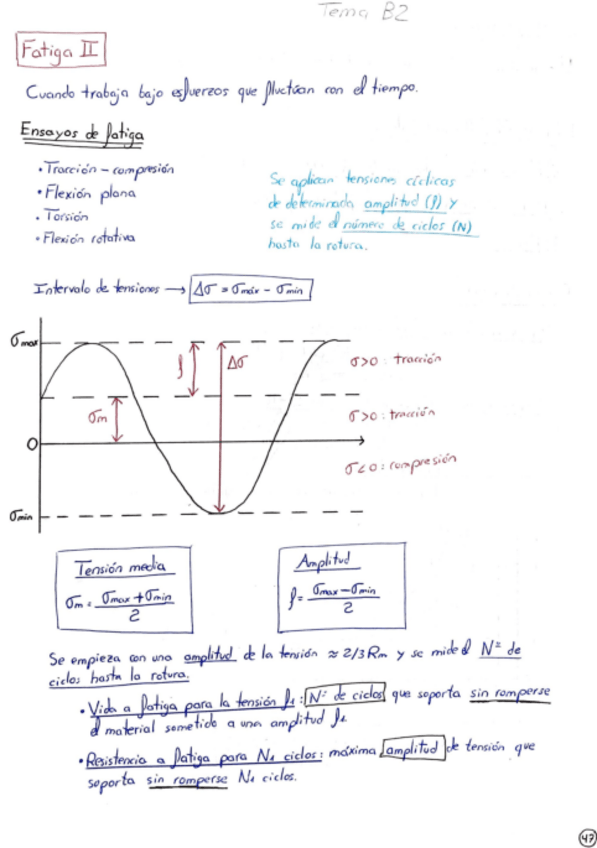 Tema B2
Fatiga II
Cuando trabaja bajo esfuerzos que fluctúan con el tiempo.
Ensayos de fatiga
• Tracción - compresión
• Flexión plana
• Torsión
• Flexión rotativa
Se aplican tensiones cíclicas
de determinada amplitud (f) y
se mide el número de ciclos (N)
hasta la rotura.
Intervalo de tensiones → Δσ = σmáx - σmin
σmax
f
Δσ
σ>0 : tracción
σm
σ>0 : tracción
0
σ<0 : compresión
σmin
Tensión media
σm = (σmax + σmin)/2
Amplitud
f = (σmax - σmin)/2
Se empieza con una amplitud de la tensión ≈ 2/3 Rm y se mide el Nº de
ciclos hasta la rotura.
• Vida a fatiga para la tensión f1 : Nº de ciclos que soporta sin romperse
el material sometido a una amplitud f1
• Resistencia a fatiga para N1 ciclos : máxima amplitud de tensión que
soporta sin romperse N1 ciclos.
47